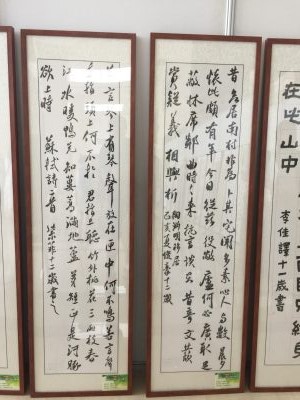 李佳譯十二歲書
昔欲居南村非為卜其宅聞多素心人樂與數晨夕
懷此頗有年今日從茲役敝廬何必廣取足
蔽牀席鄰曲時時來抗言談在昔奇文共欣
賞疑義相與析 陶淵明移居
十二歲
若言琴上有琴聲放在匣中何不鳴若言聲
在指頭上何不於君指上聽竹外桃花三兩枝春
江水暖鴨先知蔞蒿滿地蘆芽短正是河豚
欲上時 蘇軾詩二首 十二歲書之